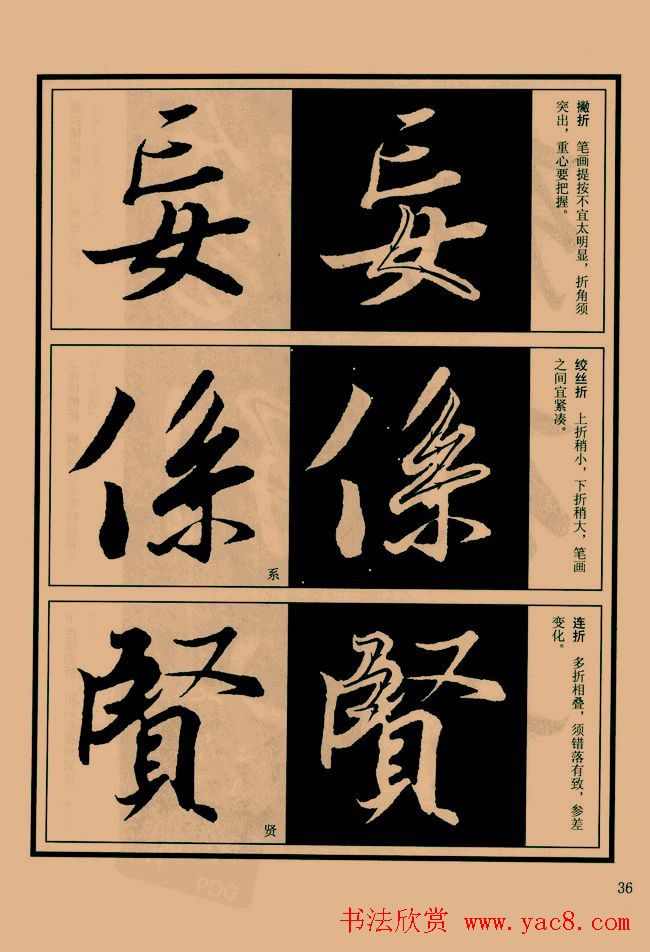 撇折　笔画提按不宜太明显，折角须
突出，重心要把握。
妄
妄
绞丝折　上折稍小，下折稍大，笔画
之间宜紧凑。
係
係
系
连折　多折相叠，须错落有致，参差
变化。
賢
賢
贤
36
PDG
书法欣赏 www.yac8.com